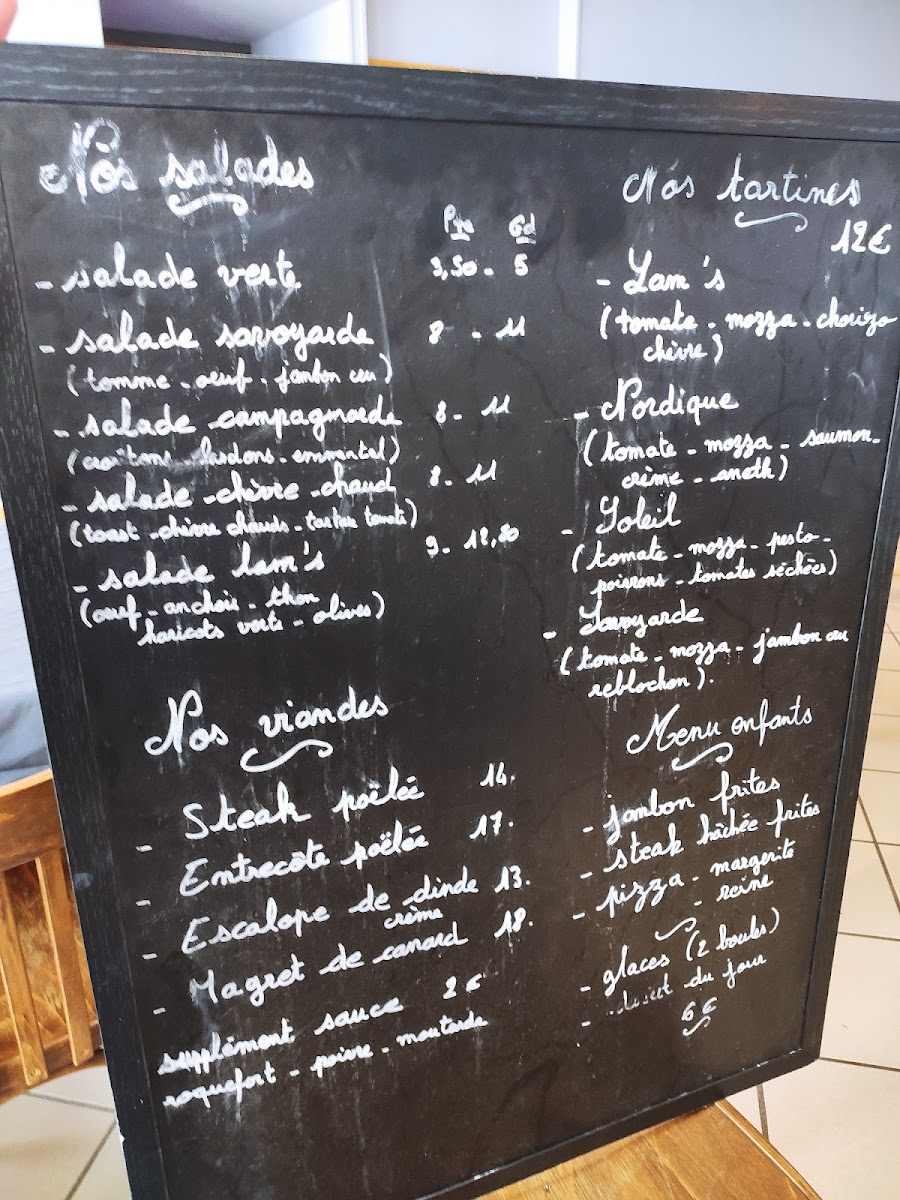 Nos salades
Pte Gd
- salade verte 3,50 - 5
- salade savoyarde 8 - 11
(tomme - oeuf - jambon cru)
- salade campagnarde 8 - 11
(croûtons - lardons - emmental)
- salade chèvre chaud 8 - 11
(toast - chèvre chauds - tartare tomate)
- salade Lam's 9 - 12,50
(oeuf - anchois - thon
haricots verts - olives)
Nos viandes
- Steak poëlée 14.
- Entrecôte poëlée 17.
- Escalope de dinde 13.
crème
- Magret de canard 18.
supplément sauce 2€
roquefort - poivre - moutarde
Nos tartines
12€
- Lam's
(tomate - mozza - chorizo
chèvre)
- Nordique
(tomate - mozza - saumon -
crème - aneth)
- Soleil
(tomate - mozza - pesto -
poivrons - tomates séchées)
- Savoyarde
(tomate - mozza - jambon cru
reblochon).
Menu enfants
- jambon frites
- steak hâchée frites
- pizza - margerite
- reine
- glaces (2 boules)
- du jour
6€